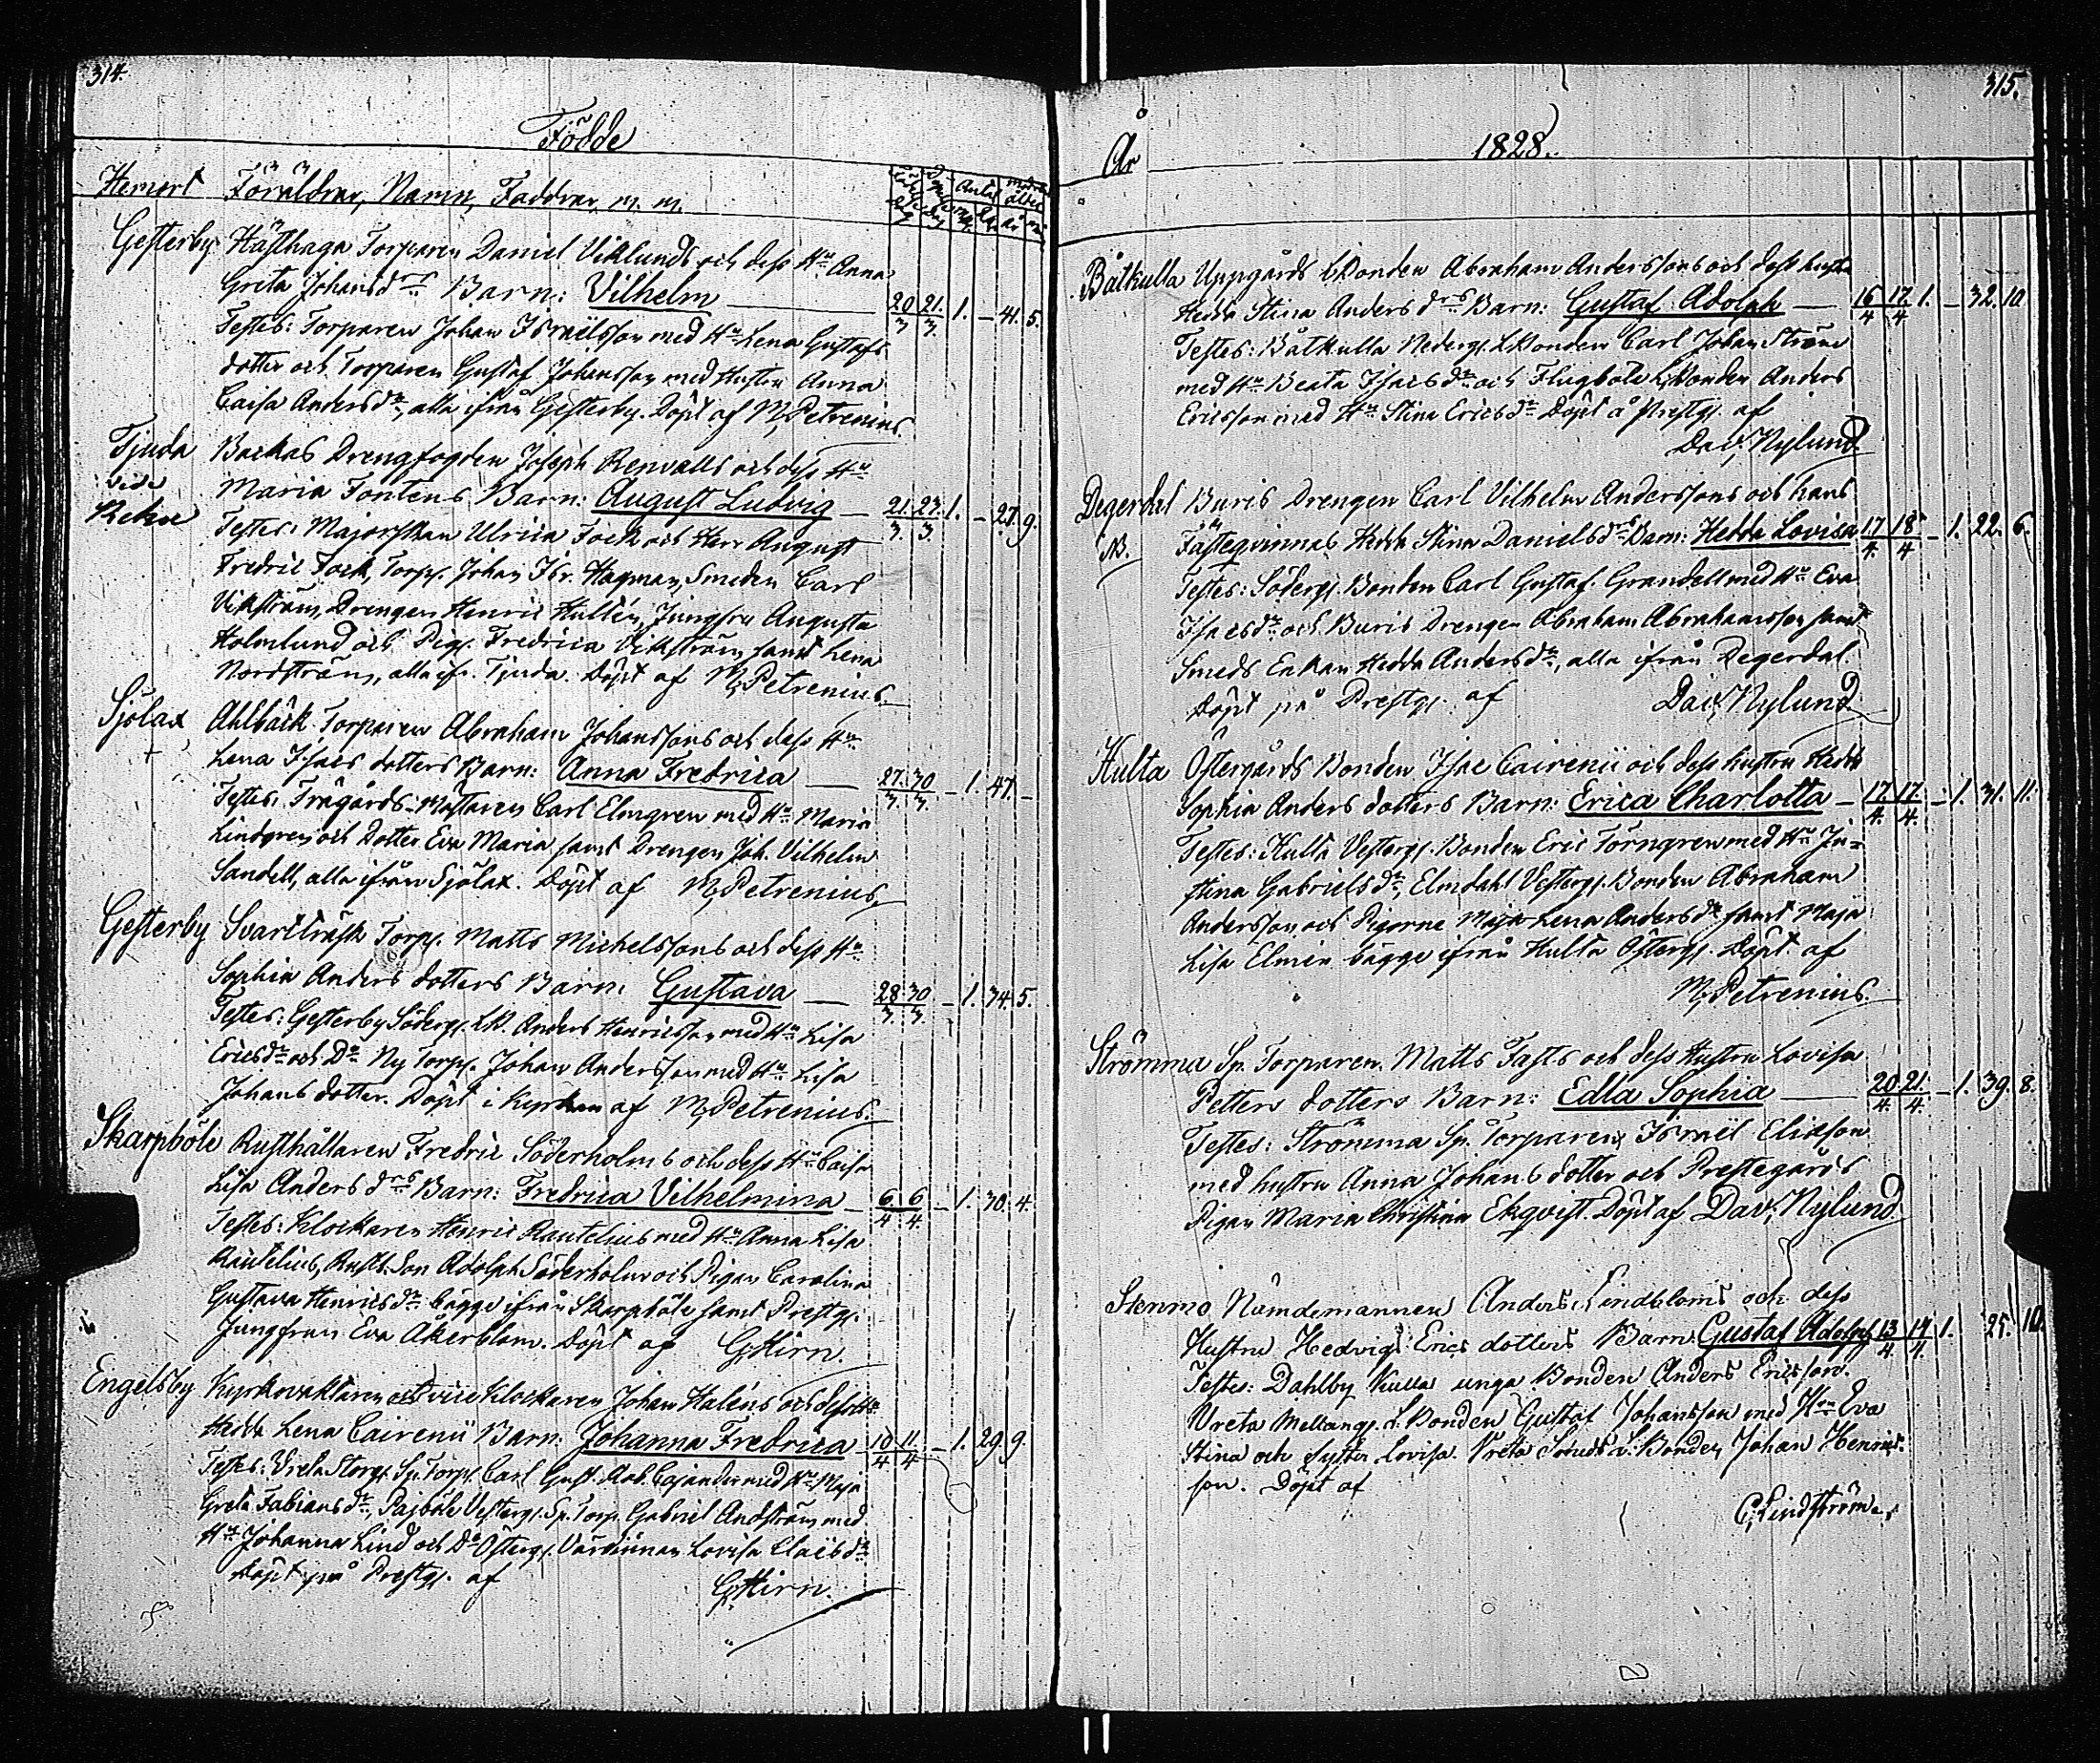 314.
Födde
Hemort Föräldrar, Namn, Faddrar, m. m.
Gesterby Hästhaga Torparen Daniel Viklunds och dess Hu Anna
Greta Johansdrs Barn: Vilhelm — 20/3 21/3. 1. – 41. 5.
Testes: Torparen Johan Israelsson med Hu Lena Gustafs
dotter och Torparen Gustaf Johansson med Hustru Anna
Caisa Andersdr, alla ifrån Gesterby. Döpt af M. Petrenius.
Tjuda Backas Drengfogden Joseph Renvalls och dess Hu
vide Maria Fontens Barn: August Ludvig — 21/3. 23/3. 1. – 27. 9.
Testes: Majorskan Ulrica Fock och Herr August
Fredric Fock, Torp. Johan Isr. Hagman, Smeden Carl
Vikström, Drengen Henric Hultén, Jungfru Augusta
Holmlund och Pig. Fredrica Vikström samt Lena
Nordström, alla ifr. Tjuda. Döpt af M. Petrenius.
Sjölax Ahlbäck Torparen Abraham Johanssons och dess Hu
Lena Isacs dotters Barn: Anna Fredrica — 27/3. 30/3. – 1. 47. –
Testes: Trägårds-Mästaren Carl Elmgren med Hu Maria
Lindgren och Dotter Eva Maria samt Drengen Joh. Vilhelm
Sandell, alla ifrån Sjölax. Döpt af M. Petrenius.
Gesterby Svartträsk Torp. Matts Michelssons och dess Hu
Sophia Anders dotters Barn: Gustava — 28/3. 30/3. – 1. 34. 5.
Testes: Gesterby Söderg. LB. Anders Henricsson med Hu Lisa
Ericsdr och Do Ny Torp. Johan Andersson med Hu Lisa
Johans dotter. Döpt i Kyrkan af M. Petrenius.
Skarpböle Rusthållaren Fredric Söderholms och dess Hu Caisa
Lisa Anders drs Barn: Fredrica Vilhelmina — 6/4 6/4. – 1. 30. 4.
Testes: Klockaren Henric Rautelius med Hu Anna Lisa
Rautelius, Rusth. Son Adolph Söderholm och Pigan Carolina
Gustava Henricsdr bägge ifrån Skarpböle samt Prestg.
Jungfrun Eva Åkerblom. Döpt af G. Hirn.
Engelsby Kyrkovaktaren och vice Klockaren Johan Haléns och dess Hu
Hedda Lena Cairenii Barn: Johanna Fredrica 10/4 11/4 – 1. 29. 9.
Testes: Vreta Storg. Sp. Torp. Carl Gust. Cajander med Hu Maja
Greta Fabiansdr, Pajböle Vesterg. Sp. Torp. Gabriel Andström med
Hu Johanna Lind och Do Österg. Värdinnan Lovisa Claësdr
Döpt på Prestg. af G. Hirn.
315.
År 1828.
Båtkulla Uppgårds LBonden Abraham Anderssons och dess hustru
Hedda Stina Anders drs Barn: Gustaf Adolph — 16/4 17/4 1. – 32. 10.
Testes: Båtkulla Nederg. LBonden Carl Johan Ström
med Hu Beata Isacsdr och Flugböle LBonden Anders
Ericsson med Hu Stina Ericsdr Döpt å Prestg. af
Dav. Nylund.
Degerdal Buris Drengen Carl Vilhelm Anderssons och hans
NB. Fästeqvinnas Hedda Stina Danielsdrs Barn: Hedda Lovisa 17/4. 18/4 – 1. 22. 6.
Testes: Söderg. Bonden Carl Gustaf Grandell med Hu Eva
Isacsdr och Buris Drengen Abraham Abrahamsson samt
Smeds Enkan Hedda Andersdr, alla ifrån Degerdal.
Döpt på Prestg. af Dav. Nylund
Hulta Östergårds Bonden Isac Cairenii och dess hustru Hedda
Sophia Anders dotters Barn: Erica Charlotta — 17/4. 17/4. – 1. 31. 11.
Testes: Hulta Vesterg. Bonden Eric Törngren med Hu Ju-
stina Gabrielsdr, Elmdahl Vesterg. Bonden Abraham
Andersson och Pigorne Maja Lena Andersdr samt Maja
Lisa Elmén bägge ifrån Hulta Österg. Döpt af
M. Petrenius.
Strömma Sp. Torparen Matts Fasts och dess Hustru Lovisa
Petters dotters Barn: Edla Sophia — 20/4. 21/4. – 1. 39. 8.
Testes: Strömma Sp. Torparen Israel Elieson
med hustru Anna Johans dotter och Prestegårds
Pigan Maria Christina Ekqvist. Döpt af Dav. Nylund
Stenmo Nämdemannen Anders Lindbloms och dess
Hustru Hedvig Erics dotters Barn Gustaf Adolph 13/4. 14/4. 1. 25. 10.
Testes: Dahlby Kulla unga Bonden Anders Ericsson.
Vreta Mellang. L. Bonden Gustaf Johansson med Hu Eva
Stina och Syster Lovisa. Vreta Smeds L. Bonden Johan Henrics-
son. Döpt af
C. Lindström.